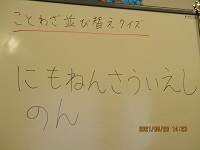 ことわざ並び替えクイズ
にもねんさういえし
のん
2021/09/20 14:23